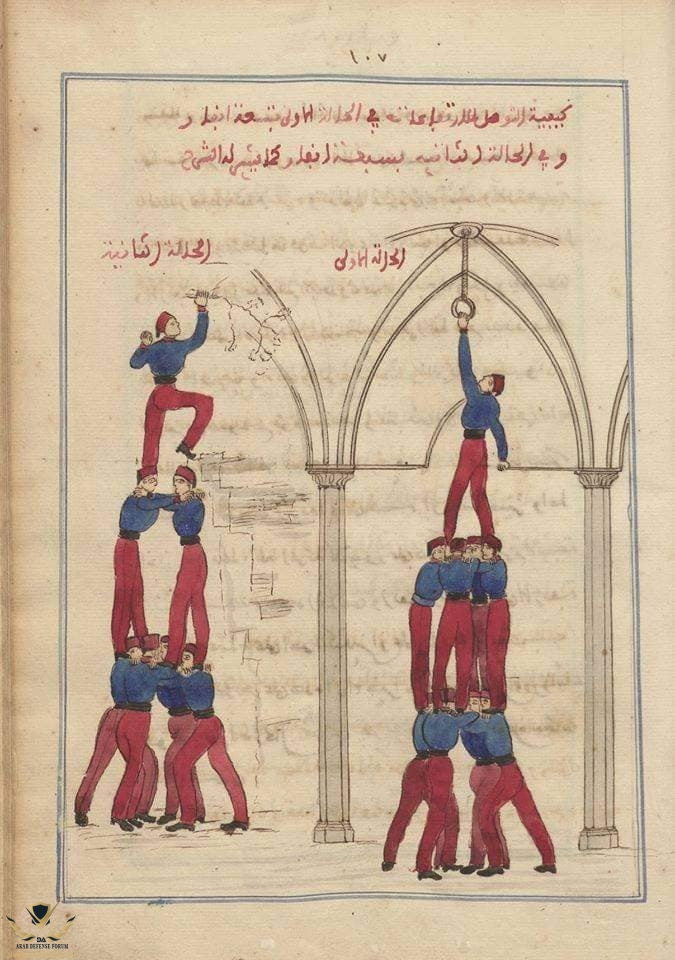 ١٠٧
كيفية التوصل في الحالة الاولى بتسعة انفار و
وفي الحالة الثانيه بسبعة انفار كما الشرح
الحالة الاولى
الحالة الثانية
DA
ARAB DEFENSE FORUM